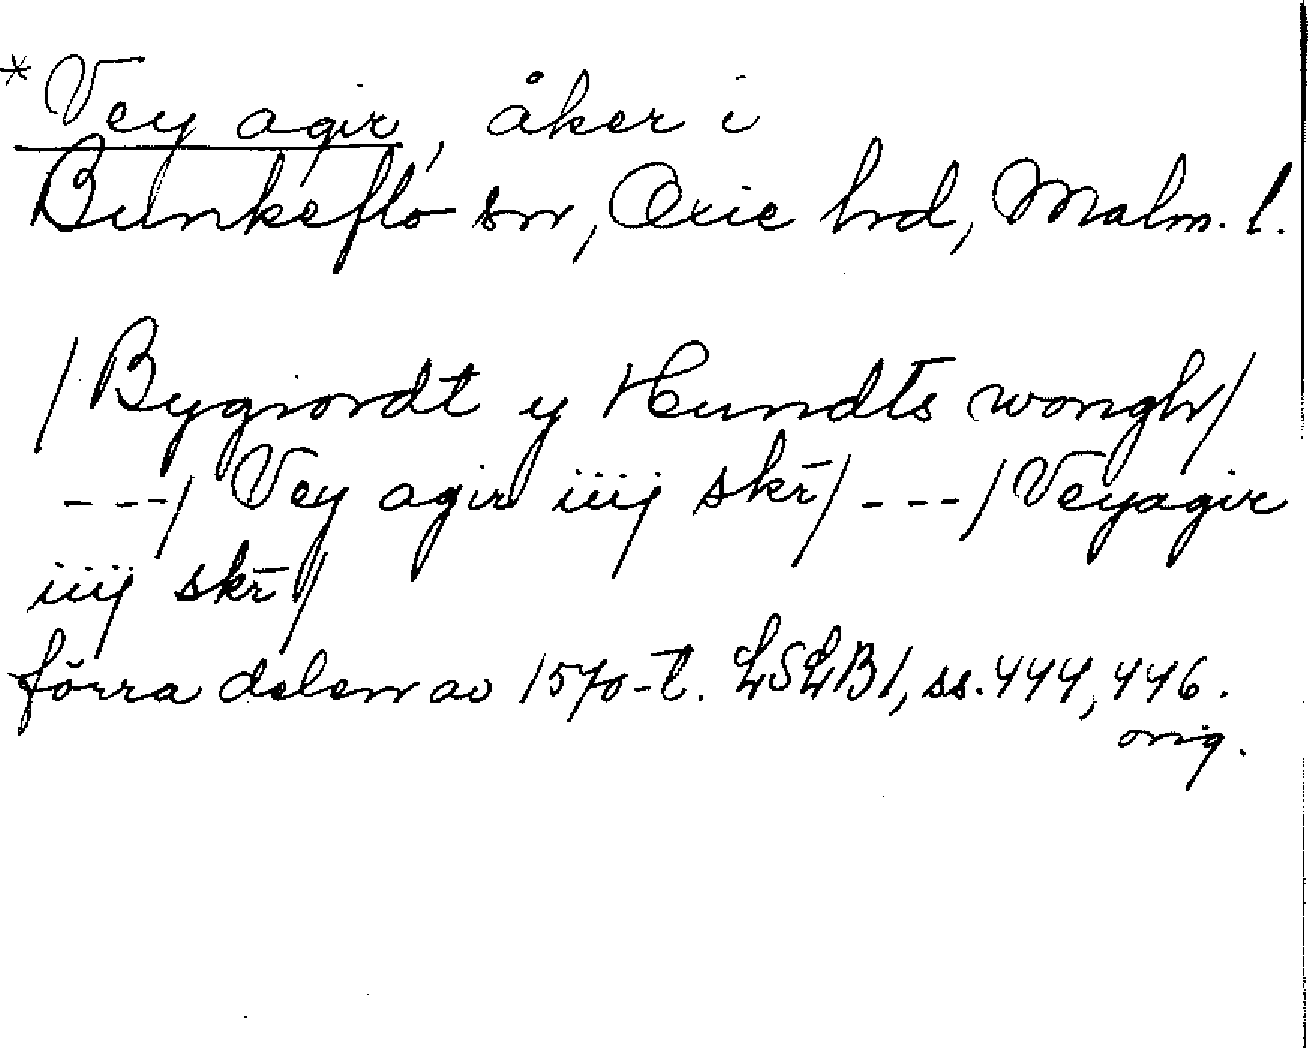 * Vey agir, åker i
Bunkeflo sn, Oxie hrd, Malm. l.
/ Bygiordt y Hundts wongh /
- - - / Vey agir iiij skr̄ / - - - / Veyagir
iiij skr̄ /
förra delen av 1570-t. LSLB1, ss. 444, 446.
orig.